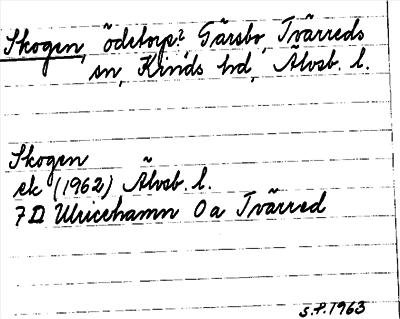 Skogen, ödetorp?, Gärsbo, Tvärreds
sn, Kinds hd, Älvsb. l.
Skogen
ek (1962) Älvsb. l.
7D Ulricehamn 0a Tvärred
S.P. 1963